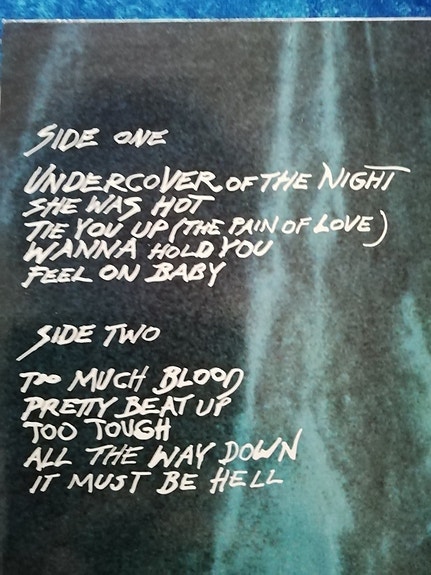 SIDE ONE
UNDERCOVER OF THE NIGHT
SHE WAS HOT
TIE YOU UP (THE PAIN OF LOVE)
WANNA HOLD YOU
FEEL ON BABY
SIDE TWO
TOO MUCH BLOOD
PRETTY BEAT UP
TOO TOUGH
ALL THE WAY DOWN
IT MUST BE HELL